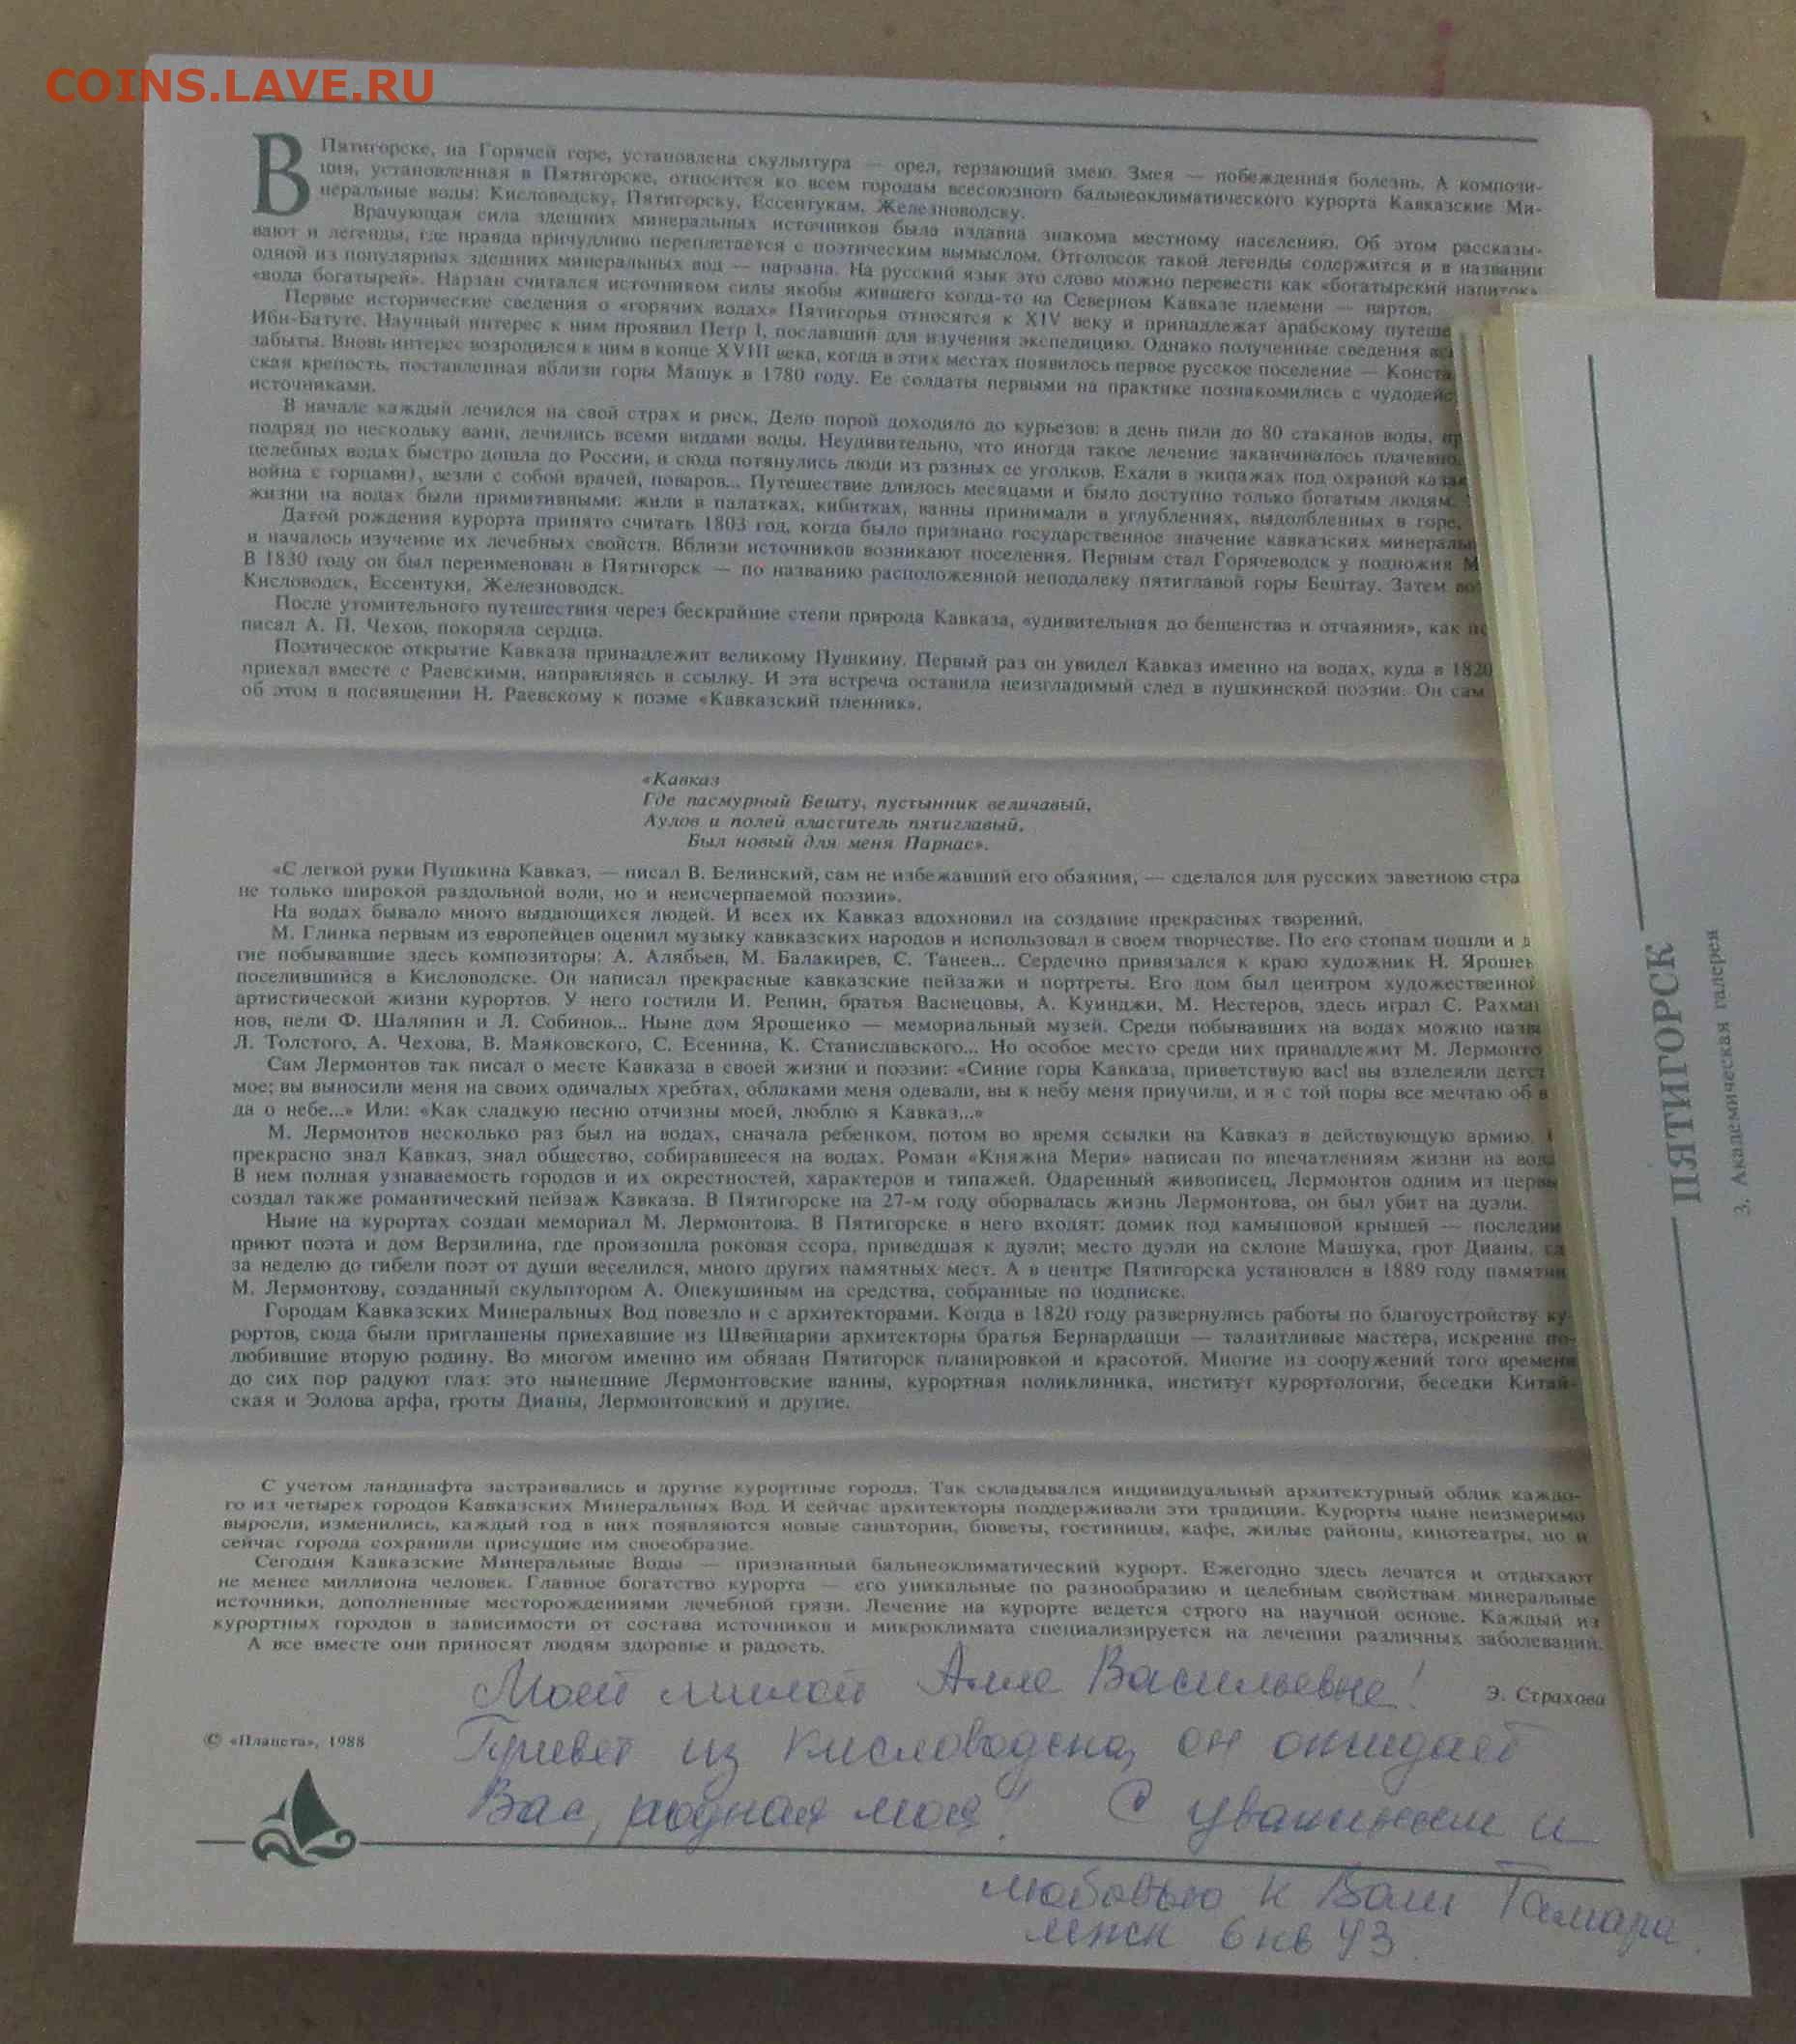 COINS.LAVE.RU
В Пятигорске, на Горячей горе, установлена скульптура — орел, терзающий змею. Змея — побежденная болезнь. А компози-
ция, установленная в Пятигорске, относится ко всем городам всесоюзного бальнеоклиматического курорта Кавказские Ми-
неральные воды: Кисловодску, Пятигорску, Ессентукам, Железноводску.
Врачующая сила здешних минеральных источников была издавна знакома местному населению. Об этом рассказы-
вают и легенды, где правда причудливо переплетается с поэтическим вымыслом. Отголосок такой легенды содержится и в названии
одной из популярных здешних минеральных вод — нарзана. На русский язык это слово можно перевести как «богатырский напиток»
«вода богатырей». Нарзан считался источником силы якобы жившего когда-то на Северном Кавказе племени — нартов.
Первые исторические сведения о «горячих водах» Пятигорья относятся к XIV веку и принадлежат арабскому путеше
Ибн-Батуте. Научный интерес к ним проявил Петр I, пославший для изучения экспедицию. Однако полученные сведения
забыты. Вновь интерес возродился к ним в конце XVIII века, когда в этих местах появилось первое русское поселение — Конста
ская крепость, поставленная вблизи горы Машук в 1780 году. Ее солдаты первыми на практике познакомились с чудодейс
источниками.
В начале каждый лечился на свой страх и риск. Дело порой доходило до курьезов: в день пили до 80 стаканов воды,
подряд по нескольку ванн, лечились всеми видами воды. Неудивительно, что иногда такое лечение заканчивалось плачевно.
целебных водах быстро дошла до России, и сюда потянулись люди из разных ее уголков. Ехали в экипажах под охраной каза
война с горцами), везли с собой врачей, поваров... Путешествие длилось месяцами и было доступно только богатым людям.
жизни на водах были примитивными: жили в палатках, кибитках, ванны принимали в углублениях, выдолбленных в горе.
Датой рождения курорта принято считать 1803 год, когда было признано государственное значение кавказских минераль
и началось изучение их лечебных свойств. Вблизи источников возникают поселения. Первым стал Горячеводск у подножия М
В 1830 году он был переименован в Пятигорск — по названию расположенной неподалеку пятиглавой горы Бештау. Затем
Кисловодск, Ессентуки, Железноводск.
После утомительного путешествия через бескрайние степи природа Кавказа, «удивительная до бешенства и отчаяния», как
писал А. П. Чехов, покоряла сердца.
Поэтическое открытие Кавказа принадлежит великому Пушкину. Первый раз он увидел Кавказ именно на водах, куда в 1820
приехал вместе с Раевскими, направляясь в ссылку. И эта встреча оставила неизгладимый след в пушкинской поэзии. Он сам
об этом в посвящении Н. Раевскому к поэме «Кавказский пленник».
«Кавказ
Где пасмурный Бешту, пустынник величавый,
Аулов и полей властитель пятиглавый,
Был новый для меня Парнас».
«С легкой руки Пушкина Кавказ, — писал В. Белинский, сам не избежавший его обаяния, — сделался для русских заветною стра
не только широкой раздольной воли, но и неисчерпаемой поэзии».
На водах бывало много выдающихся людей. И всех их Кавказ вдохновил на создание прекрасных творений.
М. Глинка первым из европейцев оценил музыку кавказских народов и использовал в своем творчестве. По его стопам пошли и д
гие побывавшие здесь композиторы: А. Алябьев, М. Балакирев, С. Танеев... Сердечно привязался к краю художник Н. Ярошен
поселившийся в Кисловодске. Он написал прекрасные кавказские пейзажи и портреты. Его дом был центром художественной
артистической жизни курортов. У него гостили И. Репин, братья Васнецовы, А. Куинджи, М. Нестеров, здесь играл С. Рахма
нов, пели Ф. Шаляпин и Л. Собинов... Ныне дом Ярошенко — мемориальный музей. Среди побывавших на водах можно назва
Л. Толстого, А. Чехова, В. Маяковского, С. Есенина, К. Станиславского... Но особое место среди них принадлежит М. Лермонто
Сам Лермонтов так писал о месте Кавказа в своей жизни и поэзии: «Синие горы Кавказа, приветствую вас! вы взлелеяли детс
мое; вы выносили меня на своих одичалых хребтах, облаками меня одевали, вы к небу меня приучили, и я с той поры все мечтаю об в
да о небе...» Или: «Как сладкую песню отчизны моей, люблю я Кавказ...»
М. Лермонтов несколько раз был на водах, сначала ребенком, потом во время ссылки на Кавказ в действующую армию.
прекрасно знал Кавказ, знал общество, собиравшееся на водах. Роман «Княжна Мери» написан по впечатлениям жизни на вода
В нем полная узнаваемость городов и их окрестностей, характеров и типажей. Одаренный живописец, Лермонтов одним из первы
создал также романтический пейзаж Кавказа. В Пятигорске на 27-м году оборвалась жизнь Лермонтова, он был убит на дуэли.
Ныне на курортах создан мемориал М. Лермонтова. В Пятигорске в него входят: домик под камышовой крышей — последни
приют поэта и дом Верзилина, где произошла роковая ссора, приведшая к дуэли; место дуэли на склоне Машука, грот Дианы,
за неделю до гибели поэт от души веселился, много других памятных мест. А в центре Пятигорска установлен в 1889 году памятни
М. Лермонтову, созданный скульптором А. Опекушиным на средства, собранные по подписке.
Городам Кавказских Минеральных Вод повезло и с архитекторами. Когда в 1820 году развернулись работы по благоустройству ку-
рортов, сюда были приглашены приехавшие из Швейцарии архитекторы братья Бернардацци — талантливые мастера, искренне по-
любившие вторую родину. Во многом именно им обязан Пятигорск планировкой и красотой. Многие из сооружений того времени
до сих пор радуют глаз: это нынешние Лермонтовские ванны, курортная поликлиника, институт курортологии, беседки Китай-
ская и Эолова арфа, гроты Дианы, Лермонтовский и другие.
С учетом ландшафта застраивались и другие курортные города. Так складывался индивидуальный архитектурный облик каждо-
го из четырех городов Кавказских Минеральных Вод. И сейчас архитекторы поддерживали эти традиции. Курорты ныне неизмеримо
выросли, изменились, каждый год в них появляются новые санатории, бюветы, гостиницы, кафе, жилые районы, кинотеатры, но и
сейчас города сохранили присущие им своеобразие.
Сегодня Кавказские Минеральные Воды — признанный бальнеоклиматический курорт. Ежегодно здесь лечатся и отдыхают
не менее миллиона человек. Главное богатство курорта — его уникальные по разнообразию и целебным свойствам минеральные
источники, дополненные месторождениями лечебной грязи. Лечение на курорте ведется строго на научной основе. Каждый из
курортных городов в зависимости от состава источников и микроклимата специализируется на лечении различных заболеваний.
А все вместе они приносят людям здоровье и радость.
Э. Страхова
Моей милой Алле Васильевне!
Привет из Кисловодска, он ожидает
Вас, родная моя! С уважением и
любовью к Вам Тамара.
мжк 6 кв 43.
© «Планета», 1988
ПЯТИГОРСК
3. Академическая галерея